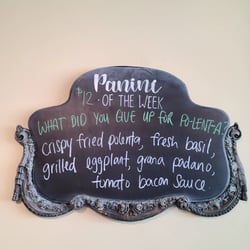 Panini
$12 · OF THE WEEK
WHAT DID YOU GIVE UP FOR PO-LENT-A?
crispy fried polenta, fresh basil,
grilled eggplant, grana padano,
tomato bacon sauce